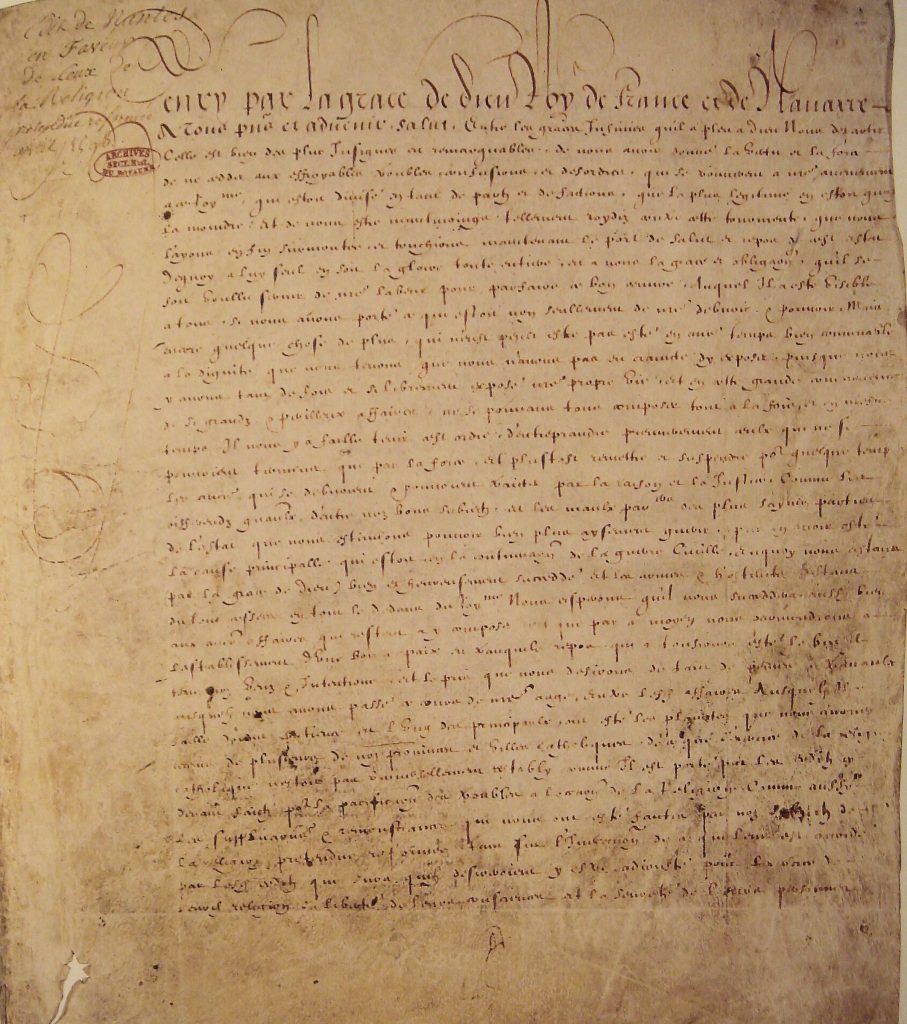 Edit de Nantes
en Faveur
de Ceux de
la Religion
pretendue reformée
avril 1598
ARCHIVES
SECT. HIST.
DU ROYAUME
Henry par la grace de dieu Roy de France et de Navarre
A tous pñs et advenir salut. Entre les graces Infinies quil a pleu a dieu Nous departir
Celle est bien des plus Insignes et remarquables, de nous avoir donné la vertu et la force
de ne cedder aux effroyables troubles, confusions, et desordres, qui se trouverent a
a ce Roy.me, qui estoit divisé en tant de partz et de factions, que la plus legitime en estoit quasi
la moindre, Et de nous estre neantmoings tellement roydiz contre ceste tourmente, que nous
layons enfin surmontée et touchions maintenant le port de salut et repos
Dequoy a luy seul en soit la gloire toute entiere, et a nous la grace et obligation, quil se
soit voullu servir de nre labeur pour parfaire ce bon œuvre, Auquel Il a esté visible
a tous, si nous avons porté ce qui estoit non seullement de nre debvoir, & pouvoir, Mais
encore quelque chose de plus, qui neust peult estre pas esté en autre temps bien convenable
a la dignité que nous tenons, que nous navons pas eu craincte dy exposer, puisque nous
y avons tant de fois et si librement exposé nre propre vie, Et en ceste grande
de si grandz & perilleux affaires, ne se pouvans tous composer tout a la fois, et en mesme
temps, Il nous y a faillu tenir cest ordre, dentreprandre premierement ceulx qui ne se
pouvoient terminer que par la force, Et plustost remettre et suspendre po.r quelque temps
les autres qui se debvoient & pouvoient traicter par la raison et la Justice, Comme les
differendz dentre noz bons subiectz, et les maulx des plus saynes parties
de lestat que nous estimions pouvoir bien plus aysement guerir, en avoir osté
la cause principalle, qui estoit en la continuation de la guerre Civille, Enquoy nous estant
par la grace de Dieu, bien et heureusement succeddé, Et les armes & hostilitez estans
du tout cessées en tout le dedans du Roy.me Nous esperons quil nous succeddera aussy bien
aux autres affaires qui restent a y composer, Et que par ce moyen nous parviendrons a
lestablissement dune bonne paix et tranquile repos, qui a tousiours esté le but
de noz & Intentions, Et le pris que nous desirions de tant de
ausquelz nous avons passé le cours de nre aage, Entre lesd. affaires ausquelz Il
et lung des principaulx ont esté les plainctes que nous avons
de plusieurs de noz provinces et villes catholiques, de ce que lexercice de la religion
catholique nestoit pas universellement restably comme Il est porté par les edictz cy
devant faictz po.r la pacification des troubles a loccasion de la Religion, Comme aussy
les supplications & remonstrances qui nous ont esté faictes par noz subiectz de
la religion pretendue reformée, tant sur linexecution de ce qui leur est accordé
par lesd. edictz que sur ce quilz desireroient y estre adiousté pour lexercice de
leurd. religion, la liberté de leurs consciences et la seureté de leurs personnes